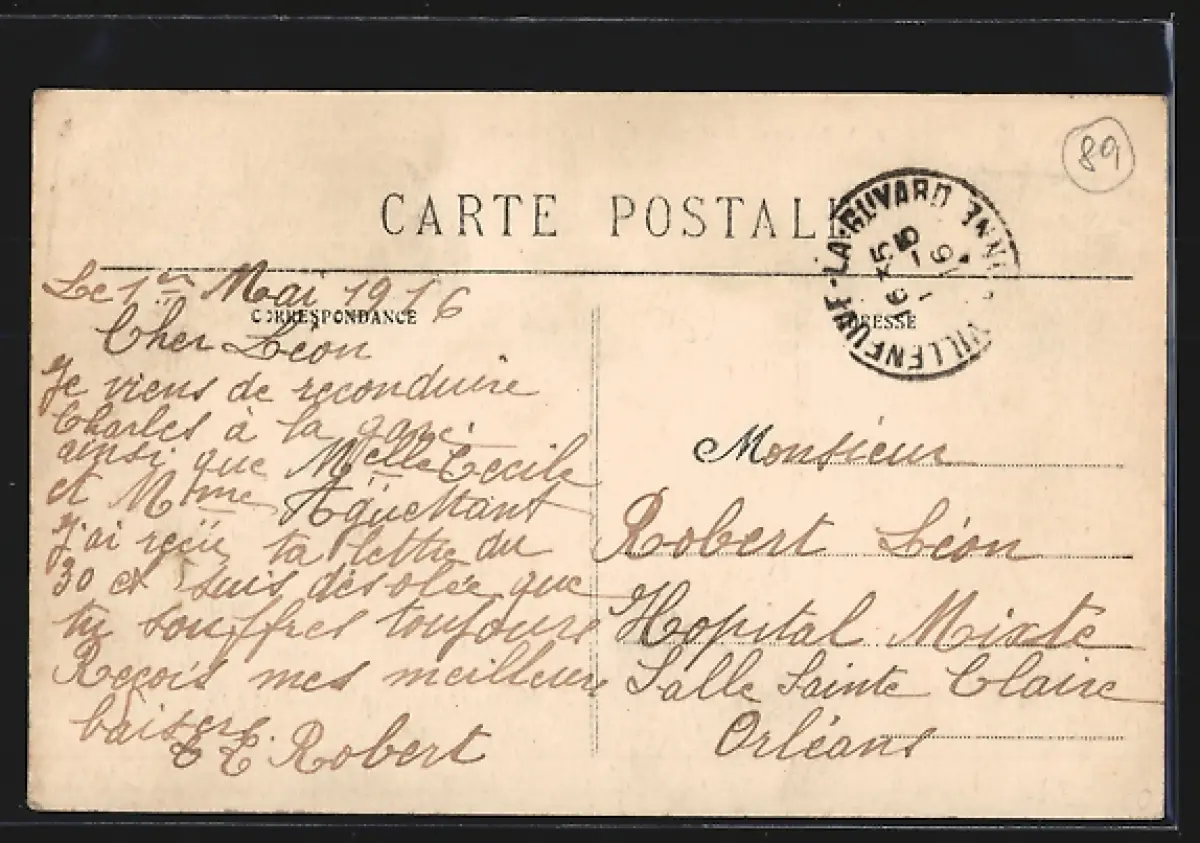 89
CARTE POSTALE
VILLENEUVE-LA-GUYARD YONNE
16 5
5 - 16
CORRESPONDANCE
ADRESSE
Le 1er Mai 1916
Cher Léon
Je viens de reconduire
Charles à la gare
ainsi que Melle Cecile
et Mme
J'ai reçu ta lettre du
30 et suis désolée que
tu souffres toujours
Reçois mes meilleurs
baisers.
Robert
Monsieur
Robert Léon
Hopital Mixte
Salle Sainte Claire
Orléans